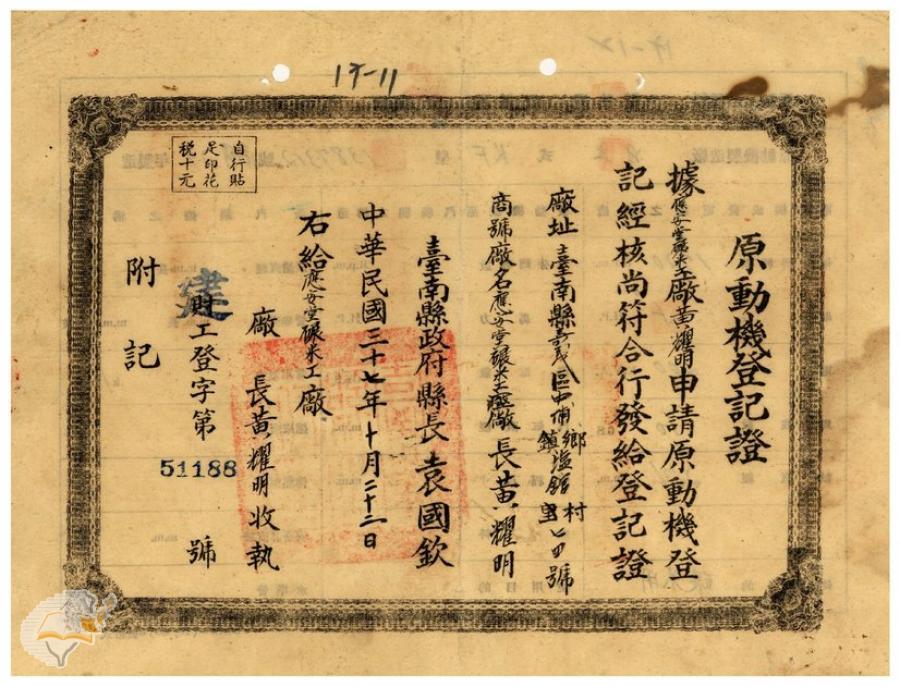 17-11
自行貼
足印花
稅十元
原動機登記證
據應安堂碾米工廠黃耀明申請原動機登
記經核尚符合行發給登記證
廠址臺南縣嘉義區中埔鄉鎮塩館村里
商號廠名應安堂碾米工廠廠長黃耀明
臺南縣政府縣長袁國欽
中華民國三十七年十月二十二日
右給應安堂碾米工廠
廠長黃耀明收執
建財工登字第51188號
附記